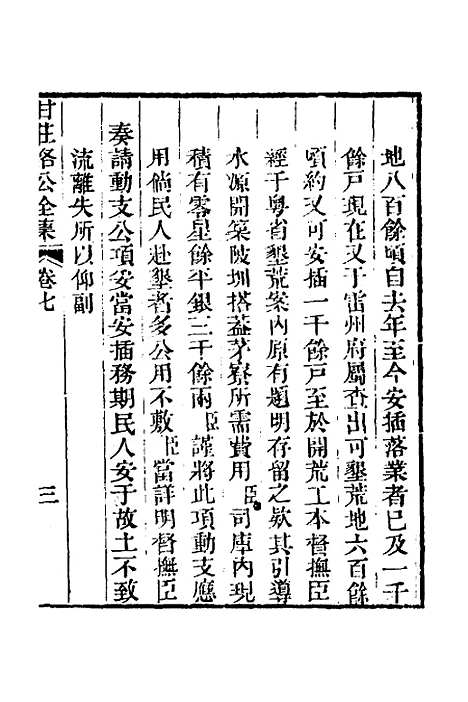 地八百餘頃自去年至今安插落業者已及一千
餘戸現在又于雷州府屬查出可墾荒地六百餘
頃約又可安插一千餘戸至於開荒工本督撫臣
經于粵省墾荒案內原有題明存留之欵其引導
水源開築陂圳搭葢茅寮所需費用臣司庫內現
積有零星餘平銀二千餘兩臣謹將此項動支應
用倘民人赴墾者多公用不敷臣當詳明督撫臣
奏請動支公項妥當安插務期民人安于故土不致
流離失所以仰副
甘莊恪公全集
卷七
三